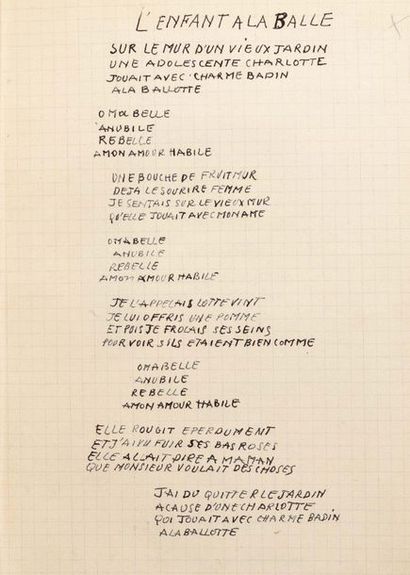 L'ENFANT A LA BALLE
SUR LE MUR D'UN VIEUX JARDIN
UNE ADOLESCENTE CHARLOTTE
JOUAIT AVEC CHARME BADIN
A LA BALLOTTE
O MA BELLE
ANUBILE
REBELLE
A MON AMOUR HABILE
UNE BOUCHE DE FRUIT MUR
DEJA LE SOURIRE FEMME
JE SENTAIS SUR LE VIEUX MUR
QU'ELLE JOUAIT AVEC MON AME
O MA BELLE
ANUBILE
REBELLE
A MON AMOUR HABILE
JE L'APPELAIS LOTTE VINT
JE LUI OFFRIS UNE POMME
ET PUIS JE FROLAIS SES SEINS
POUR VOIR S'ILS ETAIENT BIEN COMME
O MA BELLE
ANUBILE
REBELLE
A MON AMOUR HABILE
ELLE ROUGIT EPERDUMENT
ET J'AI VU FUIR SES BAS ROSES
ELLE ALLAIT DIRE A MAMAN
QUE MONSIEUR VOULAIT DES CHOSES
J'AI DU QUITTER LE JARDIN
A CAUSE D'UNE CHARLOTTE
QUI JOUAIT AVEC CHARME BADIN
A LA BALLOTTE